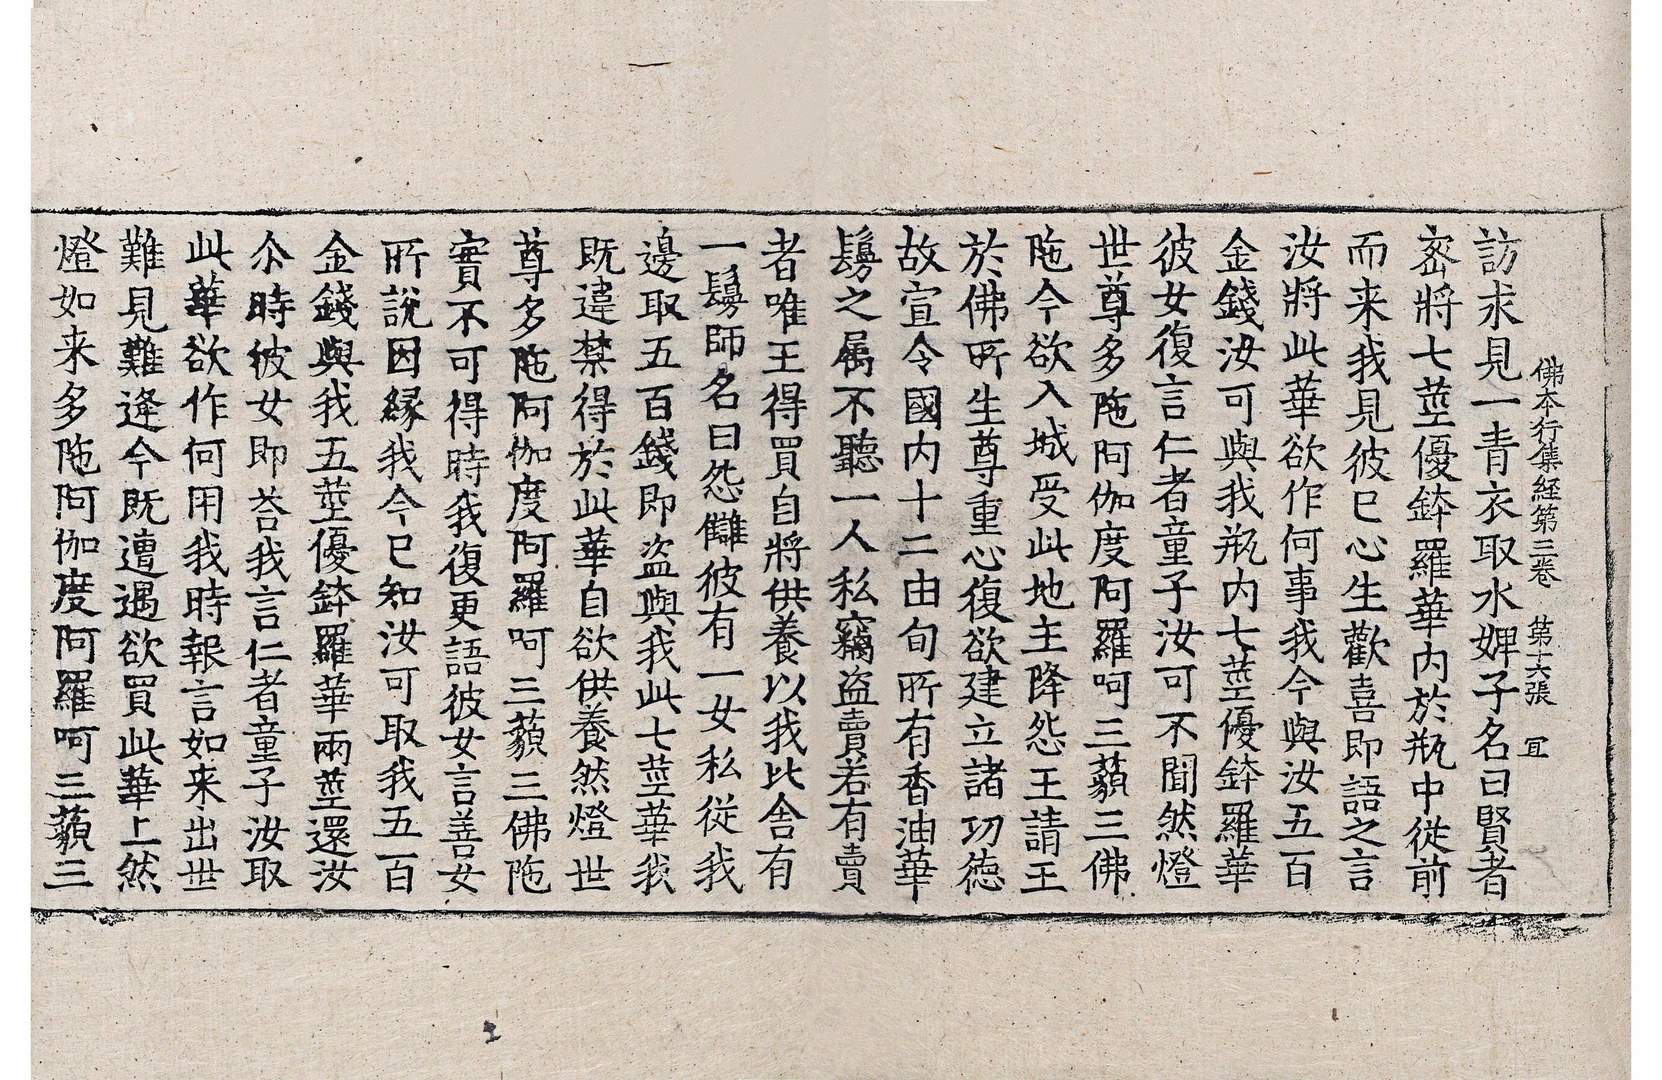 佛本行集経第三卷　第十六張　冝
訪求見一青衣取水婢子名曰賢者
宻將七莖優鉢羅華内於瓶中従前
而来我見彼已心生歡喜即語之言
汝將此華欲作何事我今與汝五百
金錢汝可與我瓶内七莖優鉢羅華
彼女復言仁者童子汝可不聞然燈
世尊多陁阿伽度阿羅呵三藐三佛
陁今欲入城受此地主降怨王請王
於佛所生尊重心復欲建立諸功徳
故宣令國内十二由旬所有香油華
鬘之属不聽一人私竊盗賣若有賣
者唯王得買自將供養以我比舎有
一鬘師名曰怨讎彼有一女私従我
邊取五百錢即盗與我此七莖華我
既違禁得於此華自欲供養然燈世
尊多陁阿伽度阿羅呵三藐三佛陁
實不可得時我復更語彼女言善女
所說因縁我今已知汝可取我五百
金錢與我五莖優鉢羅華兩莖還汝
尒時彼女即荅我言仁者童子汝取
此華欲作何用我時報言如来出世
難見難逢今既遭遇欲買此華上然
燈如来多陁阿伽度阿羅呵三藐三